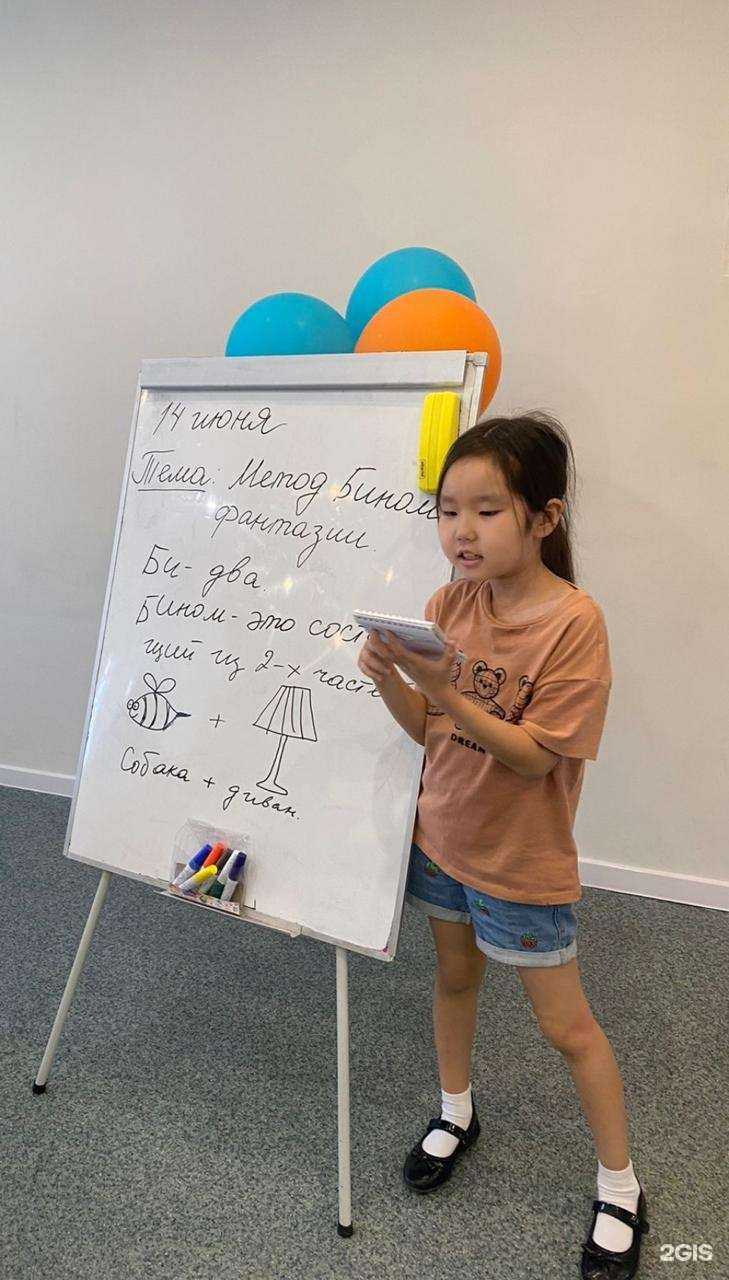 14 июня
Тема: Метод Бином
фантазии.
Би- два.
Бином- это
щий из 2-х
+
Собака + диван.
DREAM
2GIS